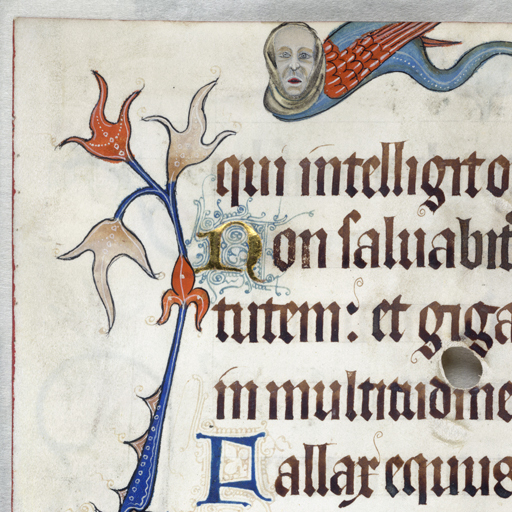 qui intelligit o
Non saluabit
tutem: et giga
in multitudine
Fallax equus